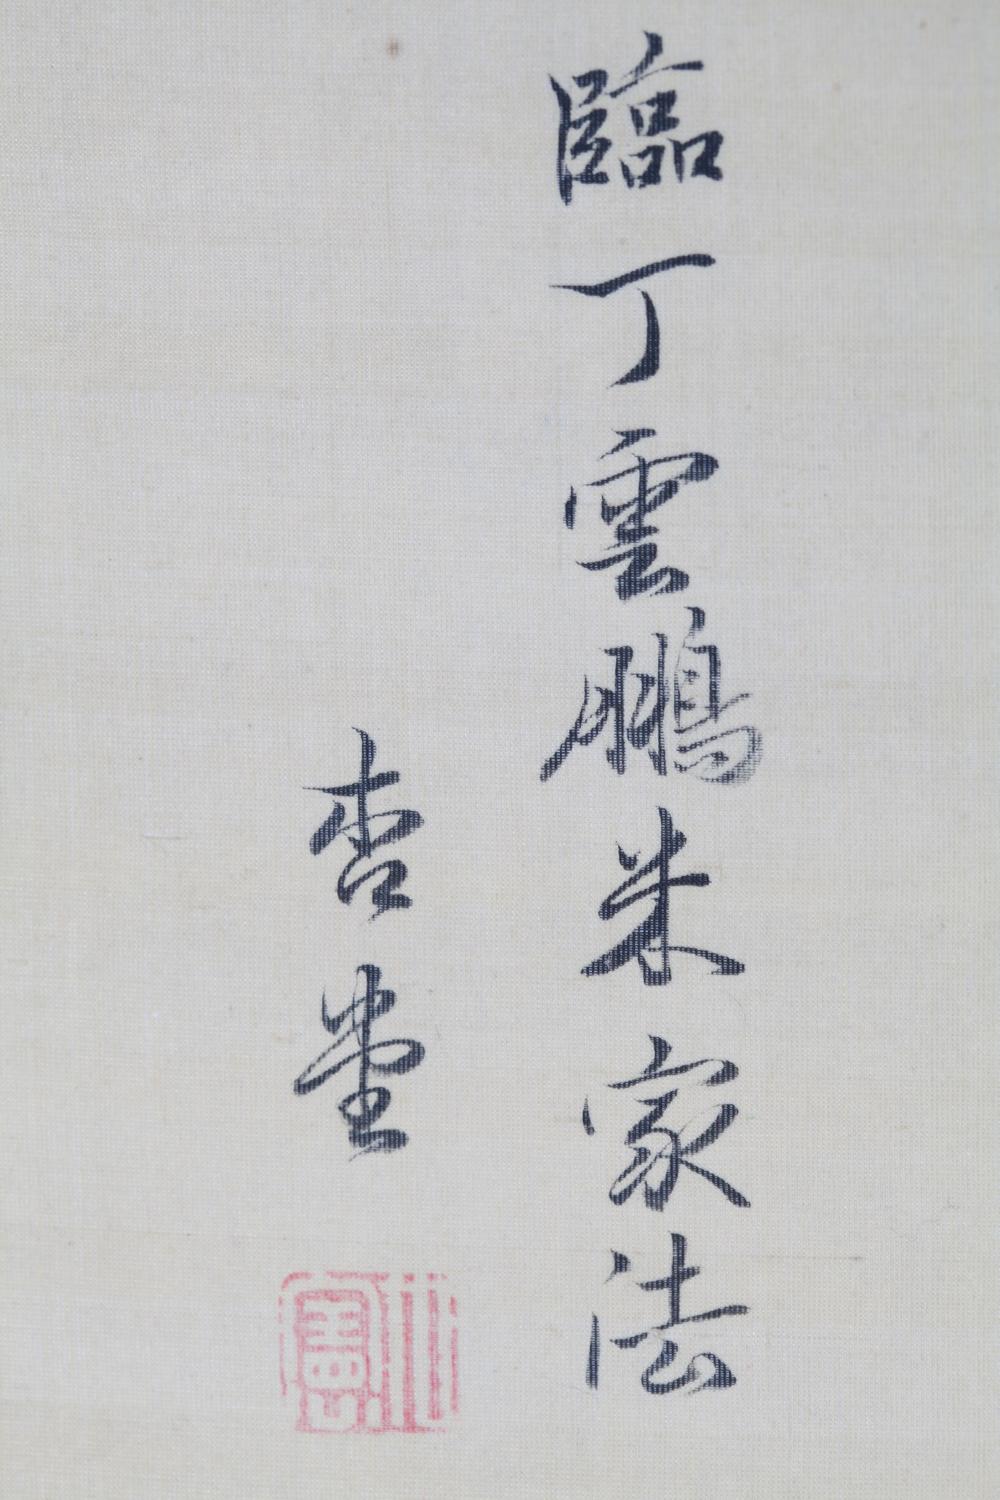 臨丁雲鵬米家法
杏堂